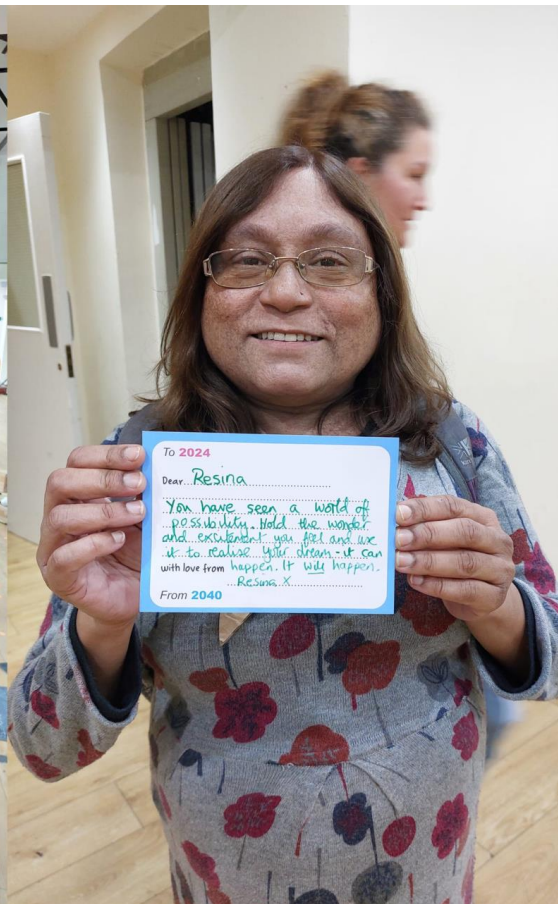 To 2024
Dear Resina
You have seen a world of
possibility. Hold the wonder
and excitement you feel and use
it to realise your dream - it can
with love from happen. It will happen.
Resina X
From 2040